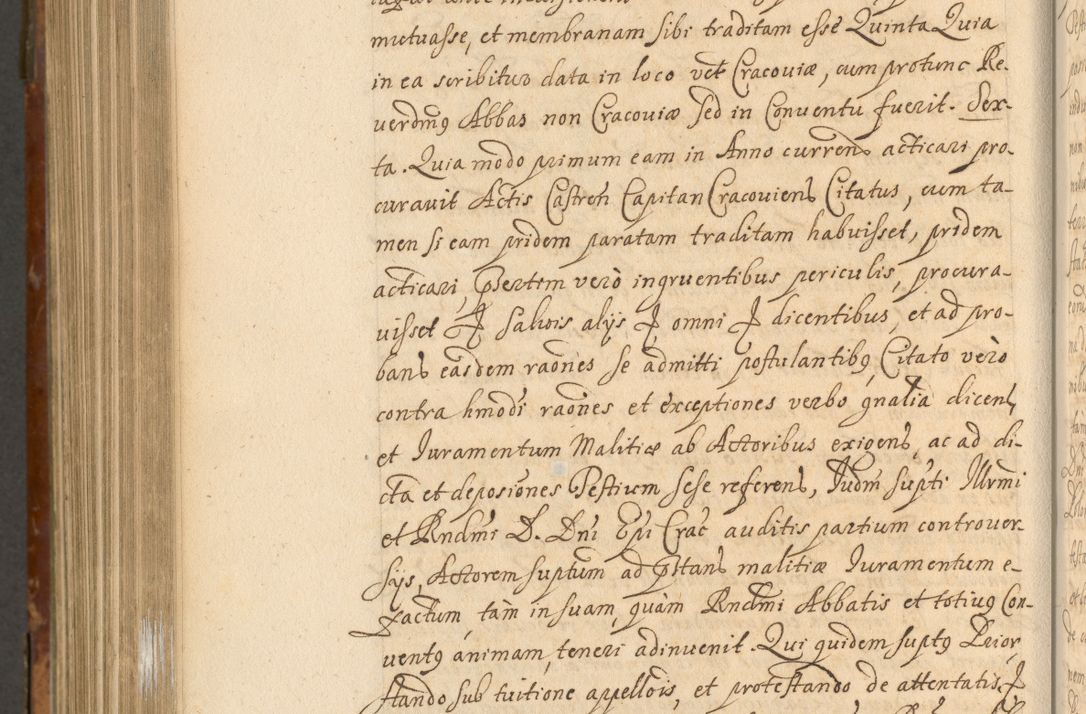 mutuasse, et membranam sibi traditam esse Quinta Quia
in ea scribitur data in loco vet Cracoviæ, cum protunc Re-
verdmꝰ Abbas non Cracoviæ sed in Conventu fuerit. Sex-
ta. Quia modo primum eam in Anno currens acticari pro-
curavit Actis Castren Capitan Cracoviens Citatus, cum ta-
men si eam pridem paratam traditam habuisset, pridem
acticari, vero ingruentibus periculis, procura-
visset Et salvis alys et omni et dicentibus, et ad pro-
bans easdem raones se admitti postulantibꝰ, Citato vero
contra hmodi raones et exceptiones verbo gnalia dicens,
et Juramentum Malitiæ ab Actoribus exigens, ac ad di-
cta et deposiones Testium sese referens, Judm supti Illrmi
et Rndmi D. Dni Epi Crac auditis partium controver-
sys, Actorem suptum ad malitiæ Juramentum e-
xactum, tam in suam, quam Rndmi Abbatis et totiꝰ Con-
ventꝰ animam, teneri adinvenit. Qui quidem suptꝰ Prior,
stando sub tuitione appellois, et protestando de attentatis, et